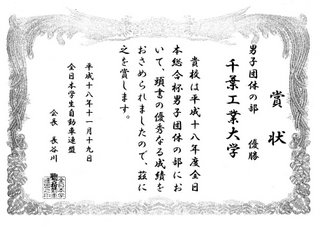 賞状
男子団体の部
優勝
千葉工業大学
貴校は平成十八年度全日
本総合杯男子団体の部にお
いて、頭書の優秀なる成績を
おさめられましたので、茲に
之を賞します。
平成十八年十一月十九日
全日本学生自動車連盟
会長 長谷川